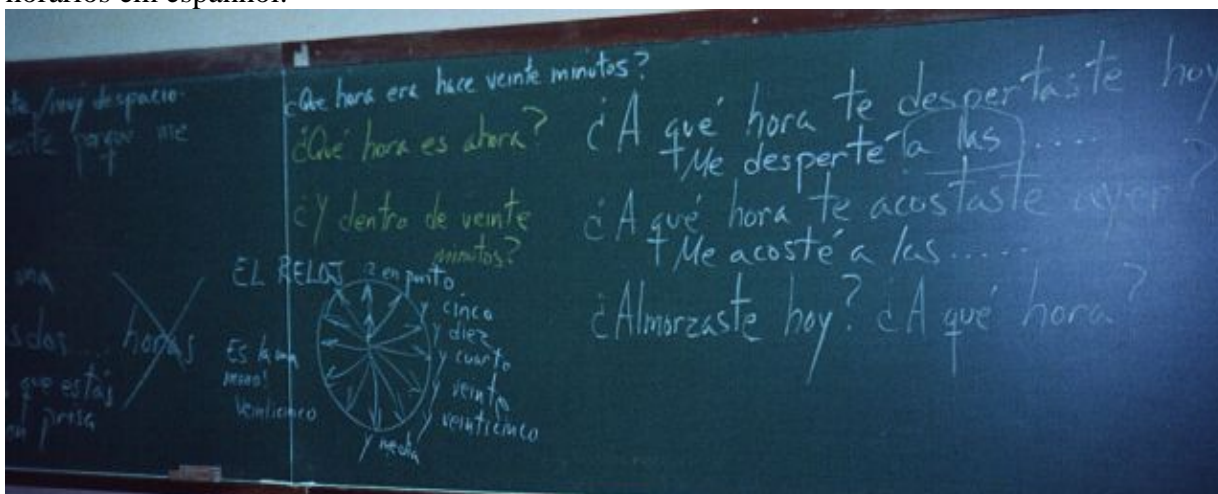 horários em espanhol.
/muy despacio.
me
una
dos... horas
que estás
prisa
¿Qué hora era hace veinte minutos?
¿Qué hora es ahora?
¿Y dentro de veinte
minutos?
EL RELOJ
en punto
y cinco
y diez
y cuarto
y veinte
y veinticinco
y media
Es la una
menos
veinticinco
¿A qué hora te despertaste hoy
Me desperté a las ....
¿A qué hora te acostaste ayer?
Me acosté a las .....
¿Almorzaste hoy? ¿A qué hora?